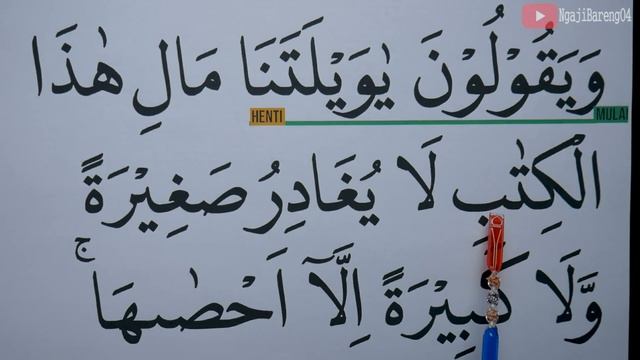 NgajiBareng04
وَيَقُوْلُوْنَ يٰوَيْلَتَنَا مَالِ هٰذَا
HENTI MULAI
الْكِتٰبِ لَا يُغَادِرُ صَغِيْرَةً
وَّلَا كَبِيْرَةً اِلَّآ اَحْصٰىهَا ۚ